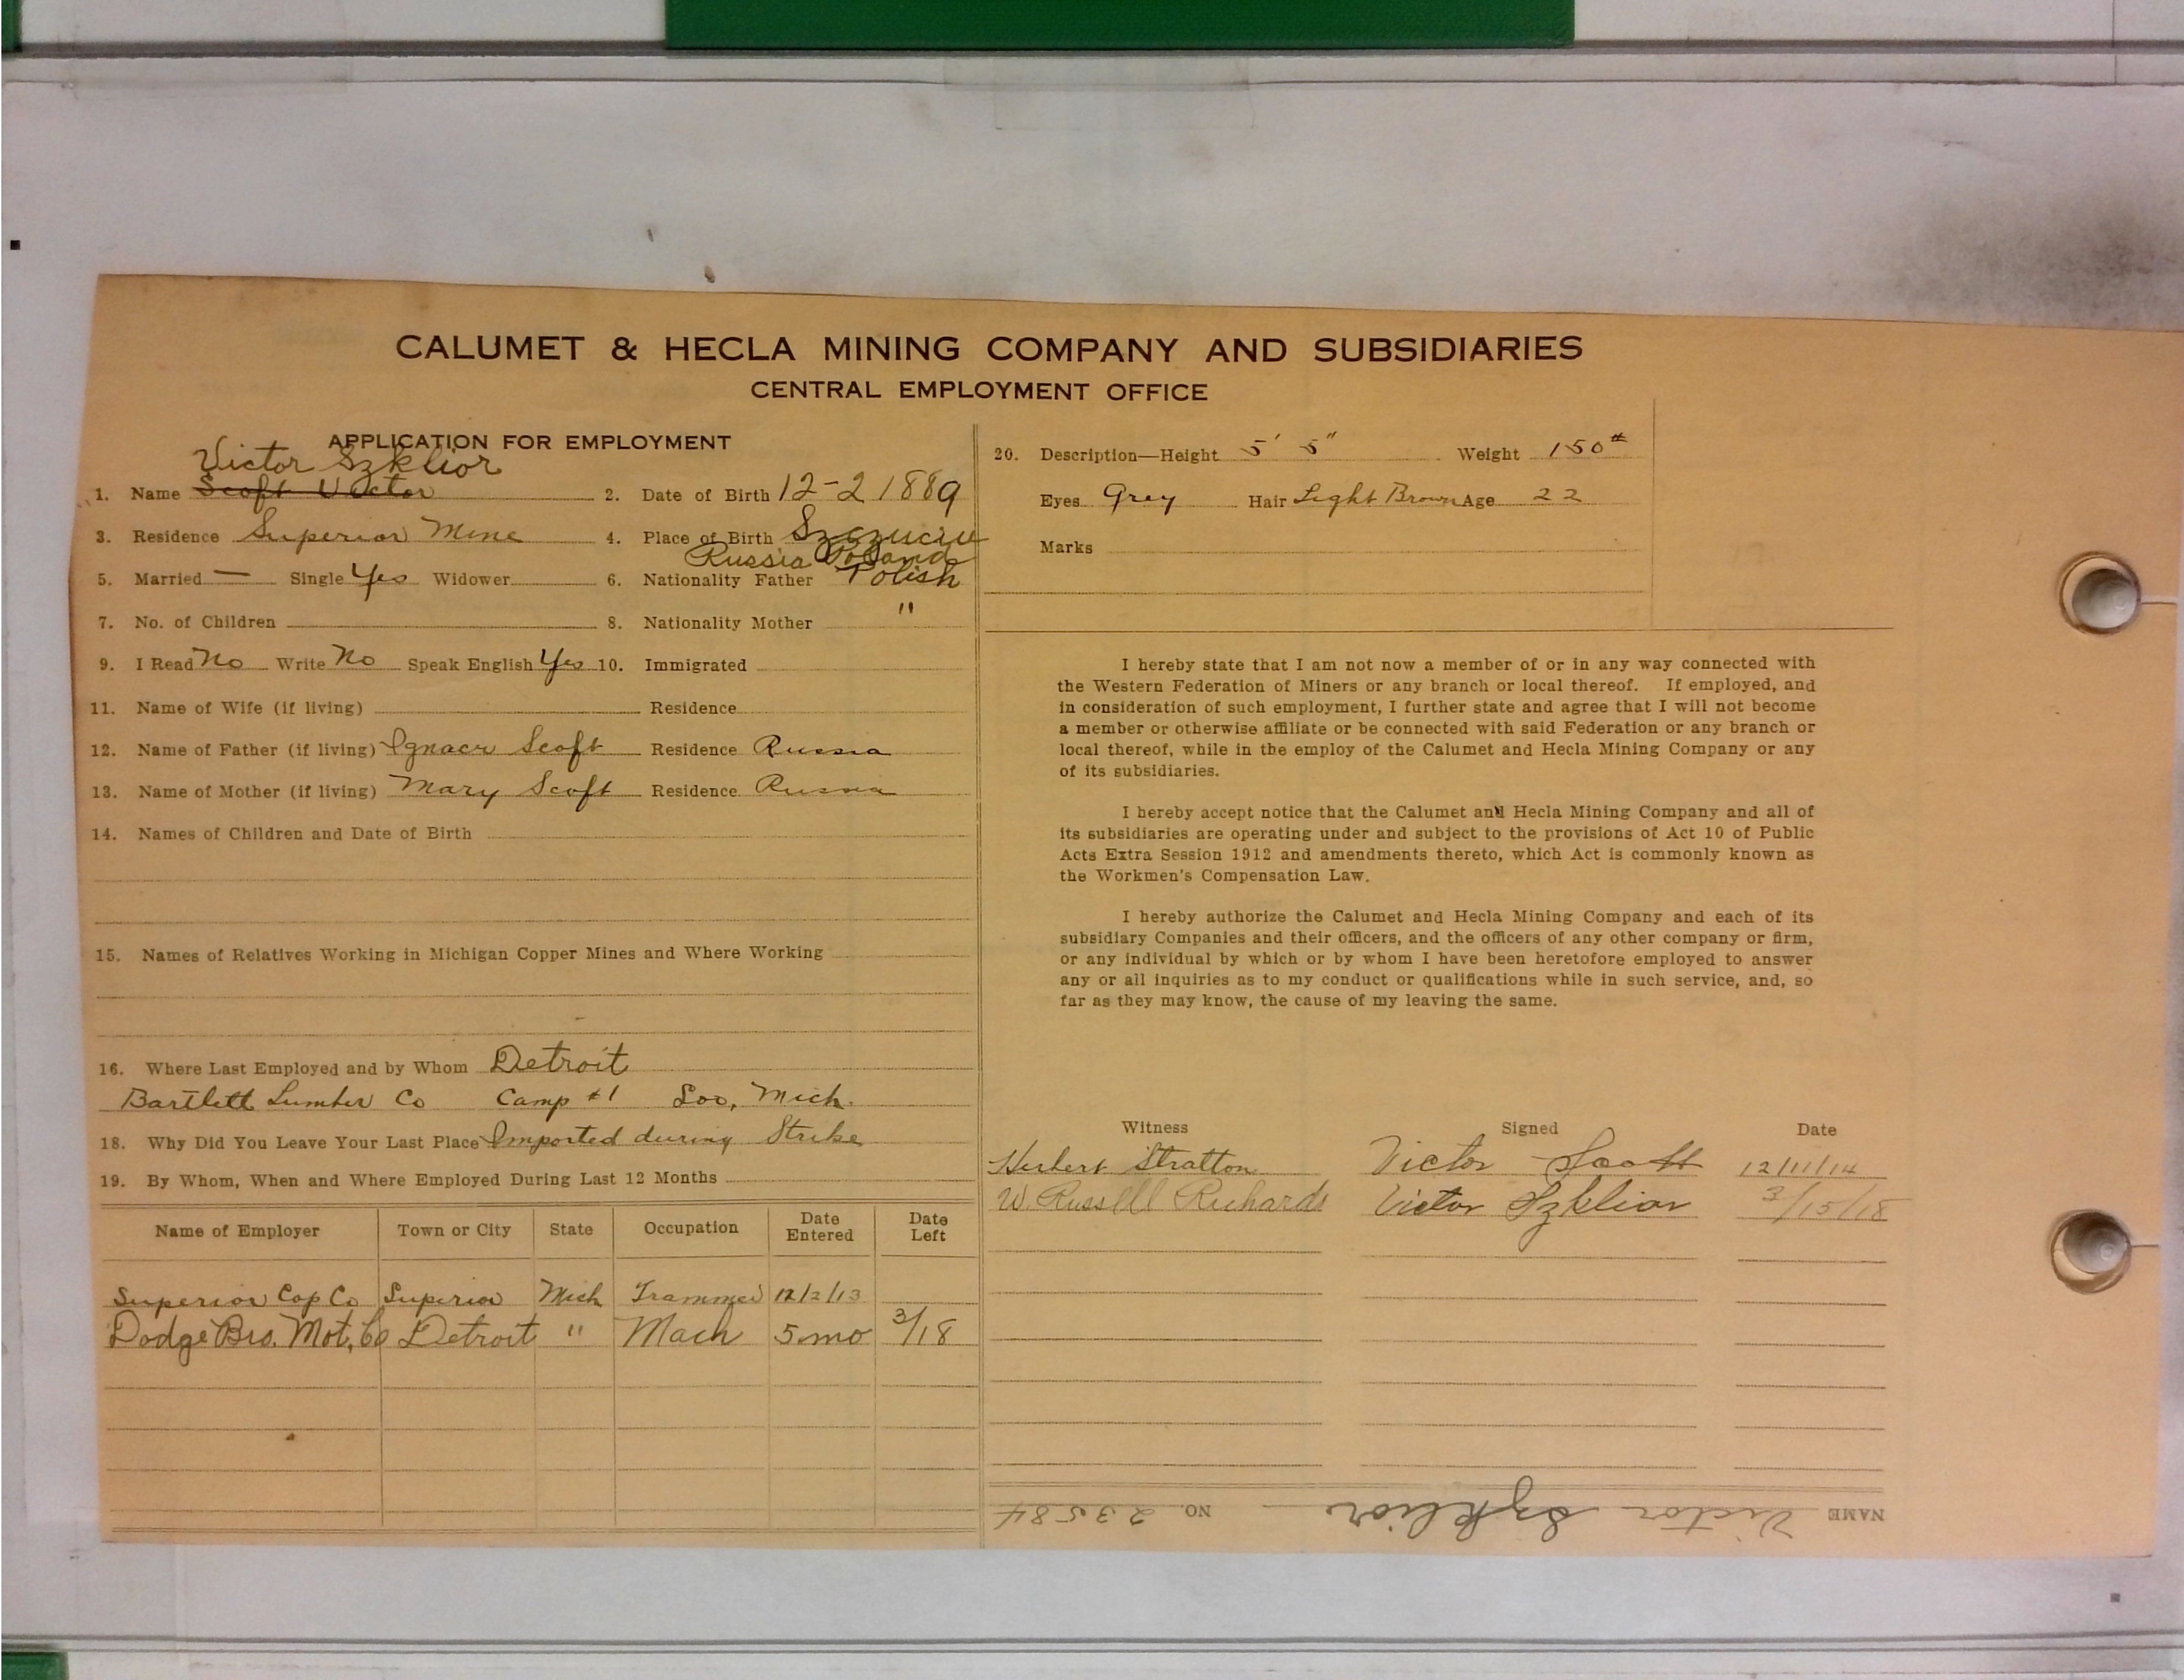 CALUMET & HECLA MINING COMPANY AND SUBSIDIARIES
CENTRAL EMPLOYMENT OFFICE
APPLICATION FOR EMPLOYMENT
Victor Szklior
1. Name Scoft Victor 2. Date of Birth 12-2 1889
3. Residence Superior Mine 4. Place of Birth Szczuciu
Russia Poland
5. Married — Single Yes Widower 6. Nationality Father Polish
7. No. of Children 8. Nationality Mother "
9. I Read No Write No Speak English Yes 10. Immigrated
11. Name of Wife (if living) Residence
12. Name of Father (if living) Ignacz Scoft Residence Russia
13. Name of Mother (if living) Mary Scoft Residence Russia
14. Names of Children and Date of Birth
15. Names of Relatives Working in Michigan Copper Mines and Where Working
16. Where Last Employed and by Whom Detroit
Bartlett Lumber Co Camp #1 Soo, Mich.
18. Why Did You Leave Your Last Place Imported during Strike
19. By Whom, When and Where Employed During Last 12 Months
Name of Employer Town or City State Occupation Date Entered Date Left
Superior Cop Co Superior Mich Trammer 12/2/13
Dodge Bro. Mot. Co Detroit " Mach 5 mo 3/18
20. Description—Height 5' 5" Weight 150#
Eyes Grey Hair Light Brown Age 22
Marks
I hereby state that I am not now a member of or in any way connected with
the Western Federation of Miners or any branch or local thereof. If employed, and
in consideration of such employment, I further state and agree that I will not become
a member or otherwise affiliate or be connected with said Federation or any branch or
local thereof, while in the employ of the Calumet and Hecla Mining Company or any
of its subsidiaries.
I hereby accept notice that the Calumet and Hecla Mining Company and all of
its subsidiaries are operating under and subject to the provisions of Act 10 of Public
Acts Extra Session 1912 and amendments thereto, which Act is commonly known as
the Workmen's Compensation Law.
I hereby authorize the Calumet and Hecla Mining Company and each of its
subsidiary Companies and their officers, and the officers of any other company or firm,
or any individual by which or by whom I have been heretofore employed to answer
any or all inquiries as to my conduct or qualifications while in such service, and, so
far as they may know, the cause of my leaving the same.
Witness Signed Date
Herbert Stratton Victor Scott 12/11/14
W. Russell Richards Victor Szklior 3/15/18
NAME Victor Szklior NO. 23584